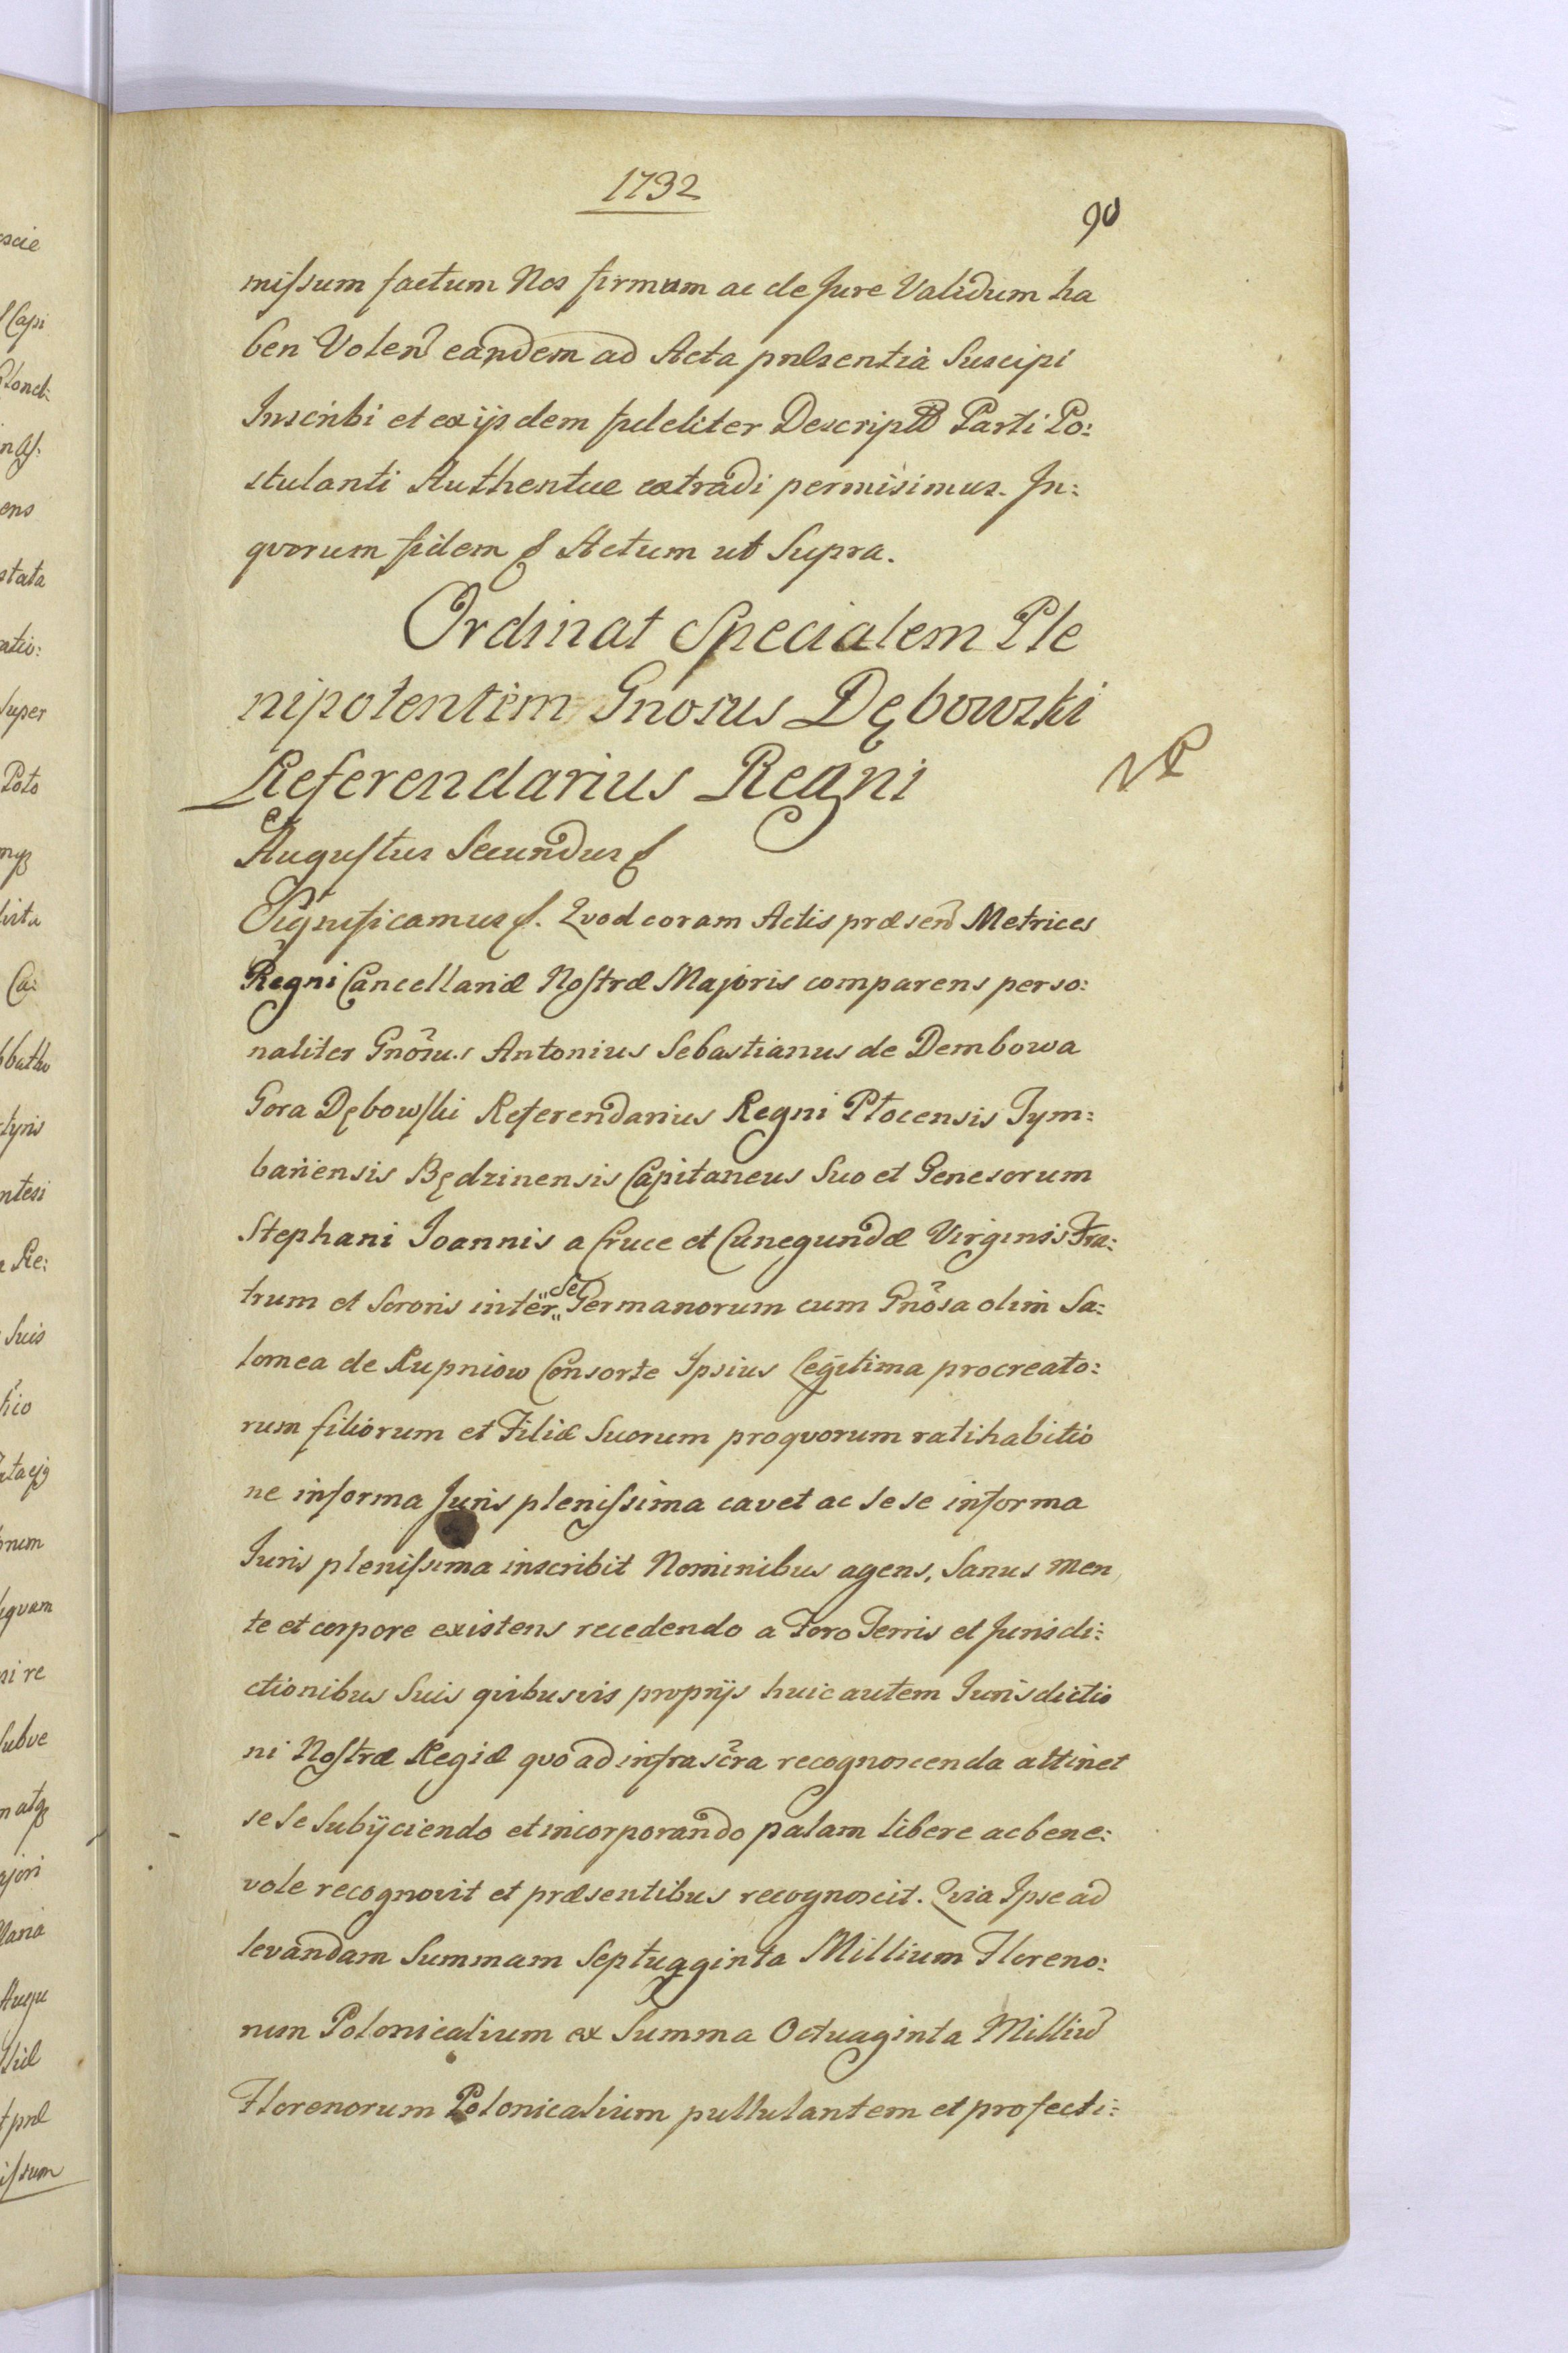 1732
90
missum factum Nos firmum ac de Jure Validum ha
ben Volen eandem ad Acta pnlsentia Suscipi
Inscribi et ex ijsdem fideliter Descriptu Parti Po:
stulanti Authentice extradi permisimus. In:
qvorum fidem & Actum ut Supra.
Ordinat Specialem Ple
nipotentem Gnosus Dębowski
Referendarius Regni
Augustus Secundus &
Significamus &. Qvod coram Actis præsen Metrices
Regni Cancellariæ Nostræ Majoris comparens perso:
naliter Gnosus Antonius Sebastianus de Dembowa
Gora Dębowski Referendarius Regni Płocensis Tym:
bariensis Będzinensis Capitaneus Suo et Genesorum
Stephani Joannis a Cruce et Cunegundæ Virginis Fra:
trum et Sororis inter "se" Germanorum cum Gnosa olim Sa:
lomea de Rupniow Consorte Ipsius legitima procreato:
rum filiorum et Filiæ Suorum pro qvorum ratihabitio
ne in forma Juris plenissima cavet ac se se in forma
Juris plenissima inscribit Nominibus agens, Sanus men
te et corpore existens recedendo a Foro Terris et Jurisdi:
ctionibus Suis qvibusvis proprijs huic autem Jurisdictio
ni Nostræ Regiæ qvo ad infrascra recognoscenda attinet
se se Subijciendo et incorporando palam libere ac bene:
vole recognovit et præsentibus recognoscit. Qvia Ipse ad
levandam Summam Septuagginta Millium Floreno:
rum Polonicalium ex Summa Octuaginta Milliu
Florenorum Polonicalium pullulantem et profecti: